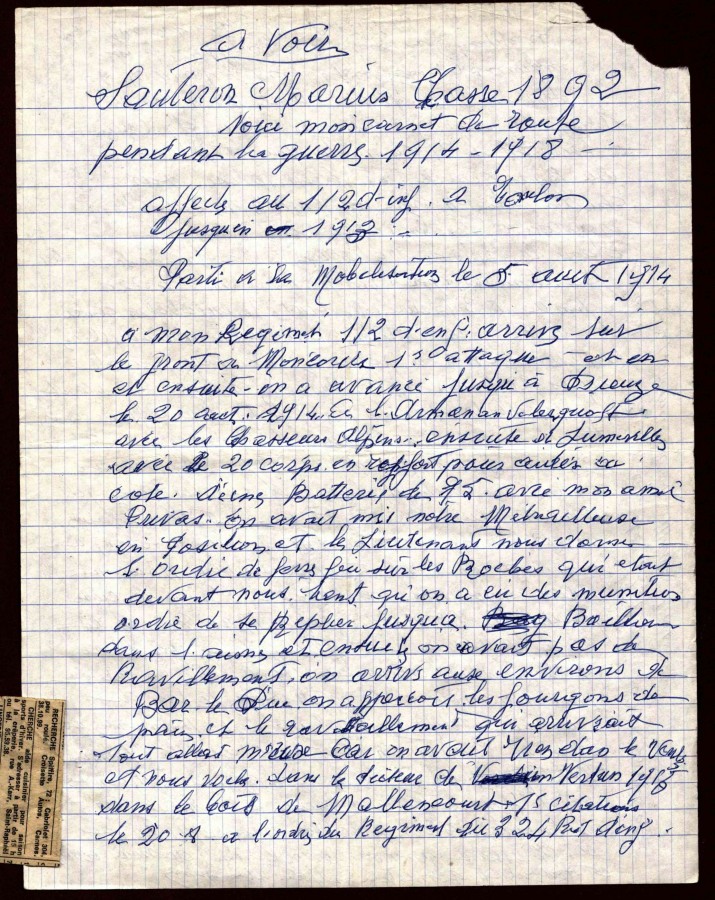 a Voir
Sauteron Marius Classe 1892
Voici mon carnet de route
pendant la guerre 1914 - 1918
affecté au 112 d-inf. a Toulon
jusquen 1913
Parti a la Mobelisation le 5 aout 1914
a mon Regiment 112 d'inf. arrive sur
le front a Moncourt 1er attaque et en
et ensuite on a avancé jusqu'à Dieuze
le 20 aout 1914
avec les Chasseurs Alpins ensuite a Luneville
avec le 20 corps en renfort pour aider a
coté d'une Batterie de 75 avec mon ami
Privas on avait mis notre Mitrailleuse
en Position et le Lieutenant nous donne
l'ordre de faire feu sur les Boches qui etait
devant nous tant qu'on a eu des munitions
ordre de se Replier jusqua
dans l. et ensuite on avait pas de
Ravillement on arrive aux environs de
Bar le Duc on appercois les fourgons de
pain et le ravitaillement qui arrivait
tout allait mieux car on avait rien dan le Ventre
et nous voila dans le secteur de Verdun 1915
dans le bois de Mallencourt 1er citation
le 20 a l'ordre du Regiment du 324 Rt d'inf.
RECHERCHE